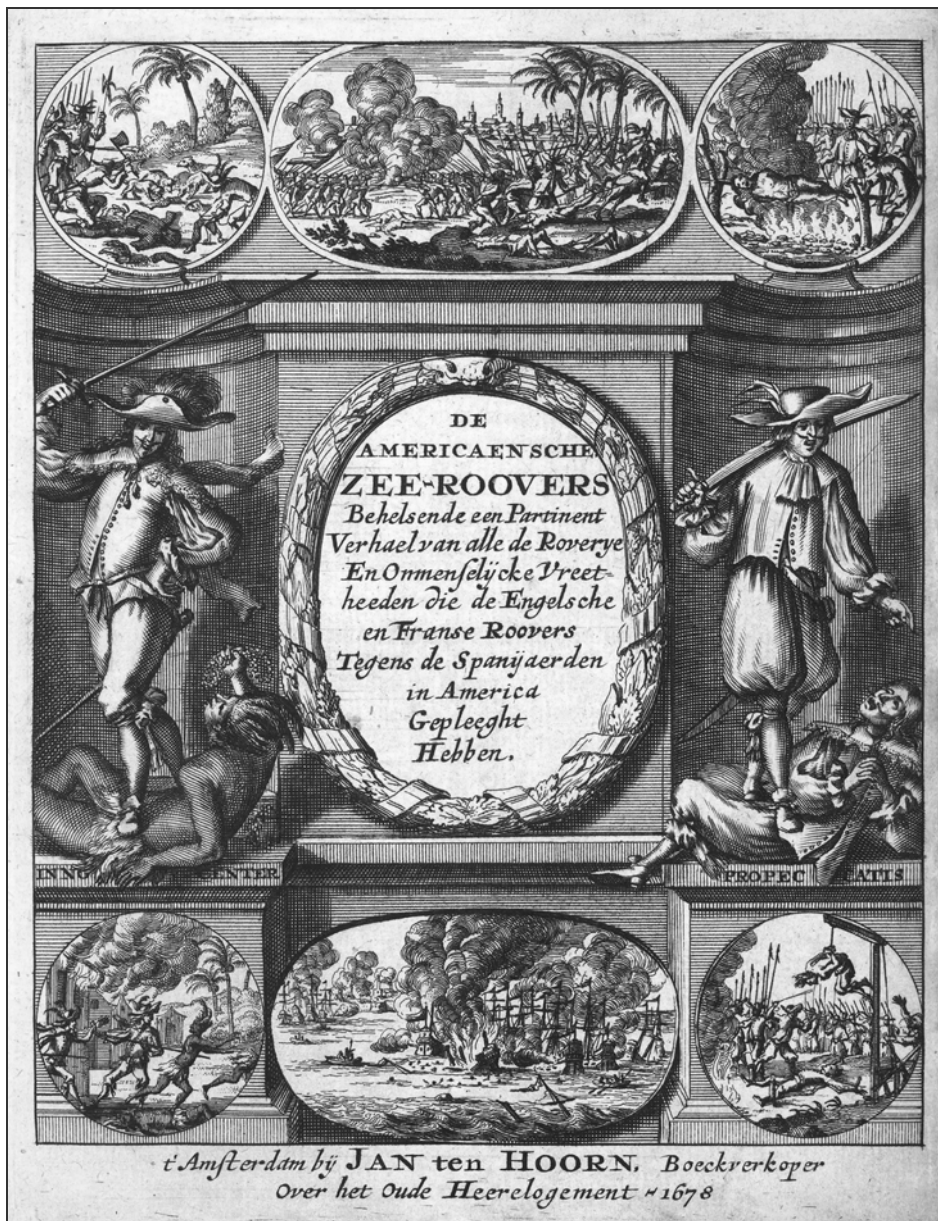 DE
AMERICAENSCHE
ZEE-ROOVERS
Behelsende een Partinent
Verhael van alle de Roverye
En Onmenselijcke Vreet-
heeden die de Engelsche
en Franse Roovers
Tegens de Spanijaerden
in America
Gepleeght
Hebben.
INNO CENTER
PROPEC CATIS
t'Amsterdam bij JAN ten HOORN, Boeckverkoper
Over het Oude Heerelogement ~ 1678